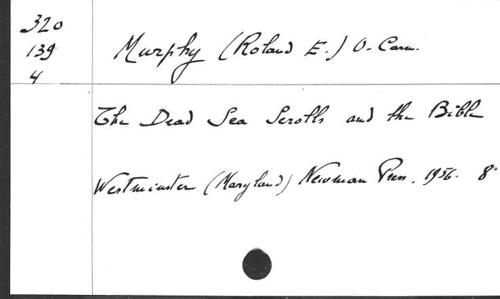 320
139
4
Murphy (Roland E.) O. Carm.
The Dead Sea Scrolls and the Bible
Westminster (Maryland) Newman Press, 1956. 8°